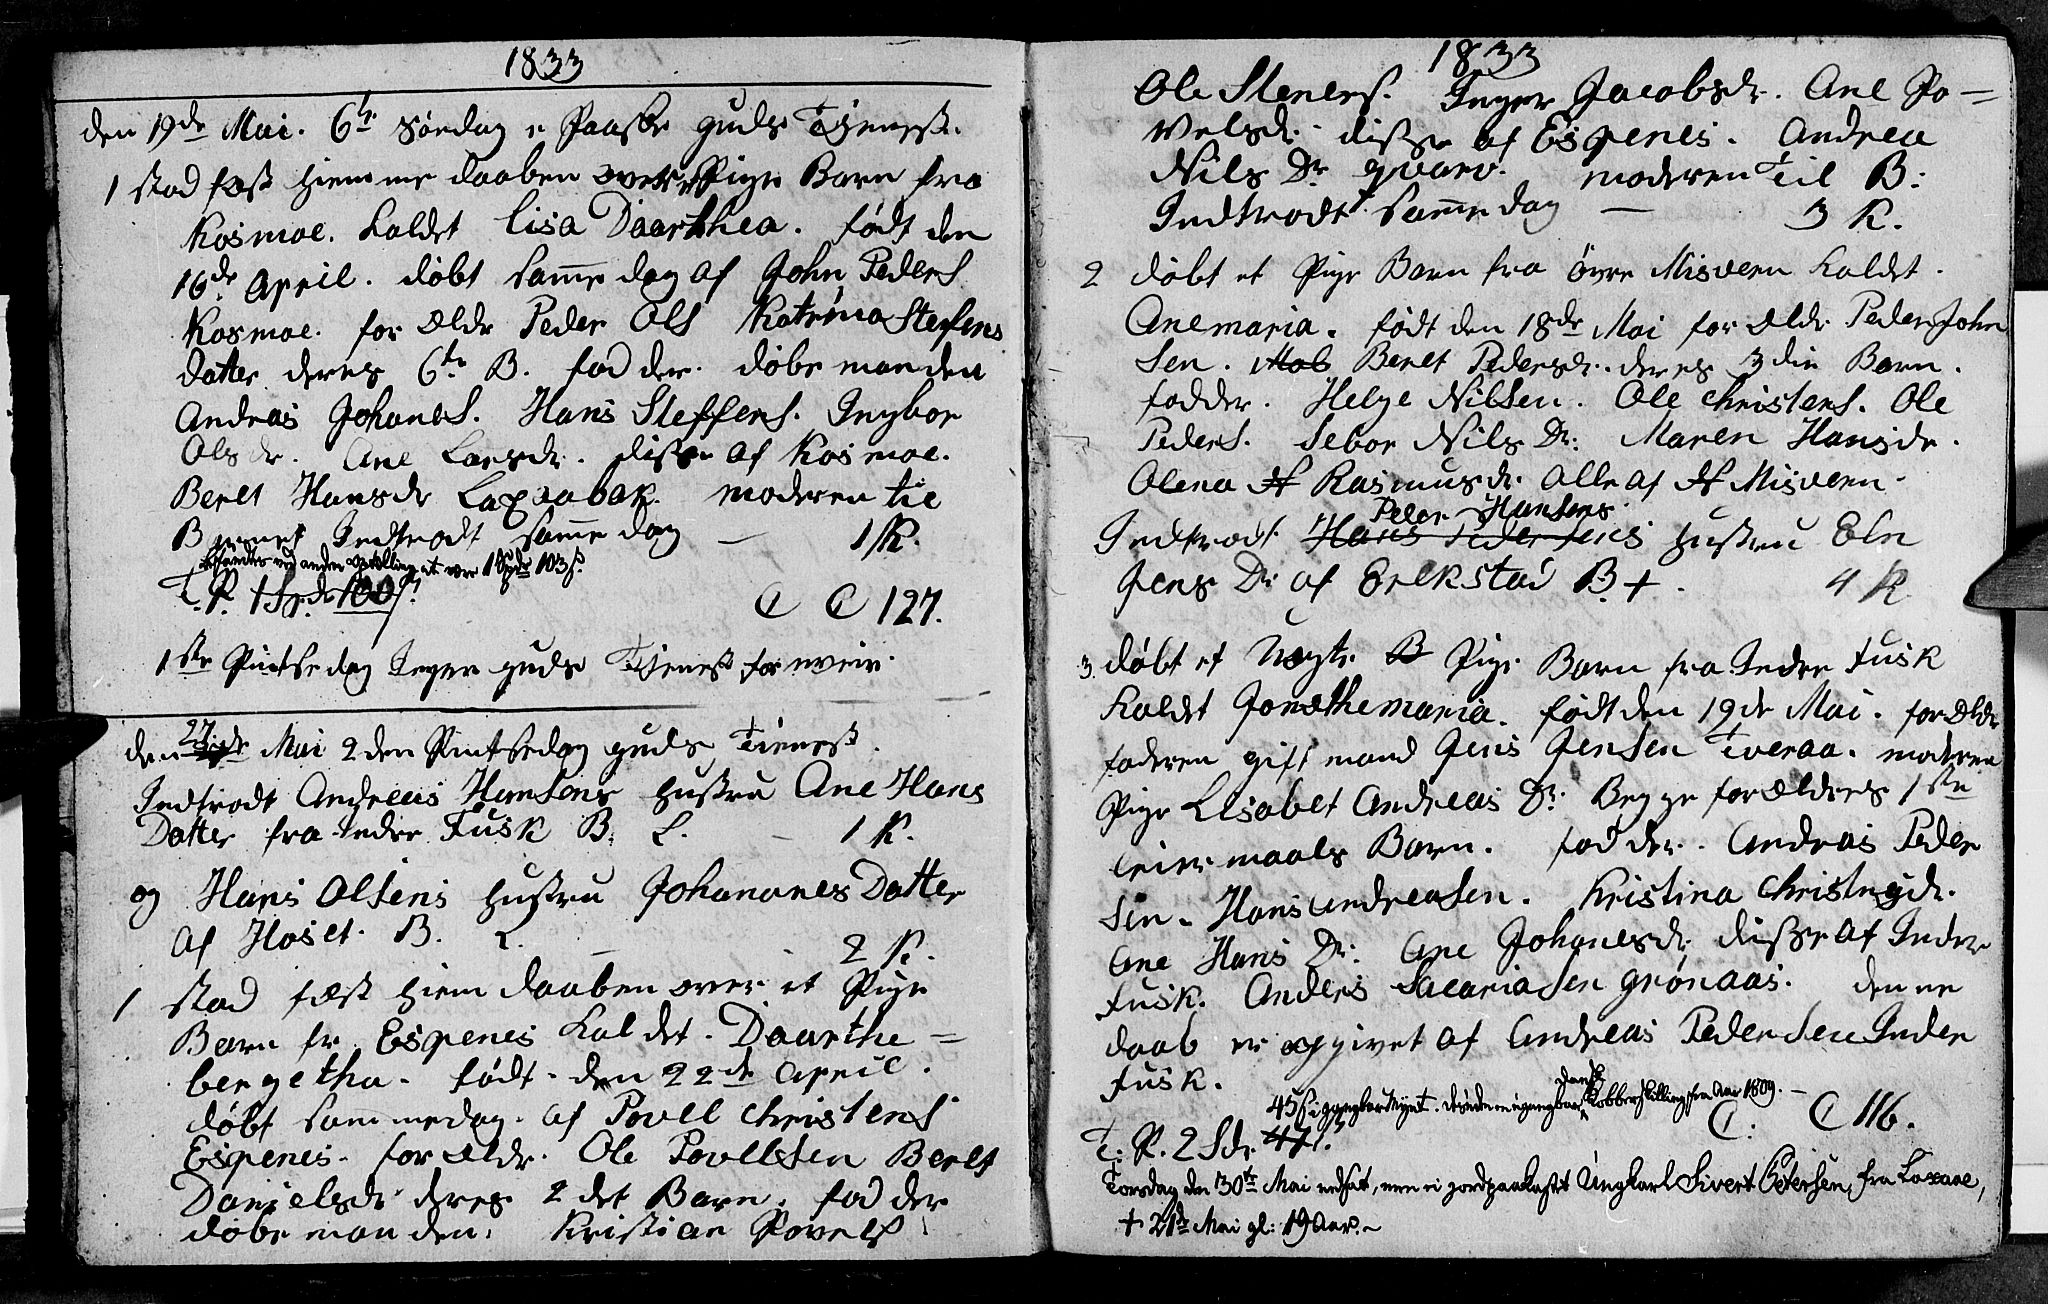 1833
den 19de Mai. 6te Søndag e Paaske guds Tienest.
1 stadfæst hiemme daaben over et Pige Barn fra
Kosmoe. kaldet Lisa Daarthea. født den
16de April. døbt samme dag af John Peders
Kosmoe. for Ældr Peder Ols Katrina Stefens
datter deres 6te B. fadder. døbe manden
Andreas Johanes. Hans Steffens. Ingbor
Olsdr. Ane Larsdr. disse af Kosmoe.
Beret Hansdr Laxaabak. moderen til
Barnet Indtrodt samme dag — 1 K.
befandtes ved anden optælling at være 1 Spdr 103 s.
T. P. 1 Sp.dr 100 s.
C C 127.
1ste Pintsedag Ingen guds Tienest for uveir.
den 27de Mai 2den Pintsedag guds Tienest.
Indtrodt Andreas Hansens hustru Ane Hans
Datter fra Indre Fusk B. L. — 1 K.
og Hans Olsens hustru Johannes Datter
af Hoset. B. L. — 2 K.
1 stad fæst hiem daaben over et Pige
Barn fr Espenes kaldet. Daarthe =
bergetha. født den 22de April.
døbt sammedag af Povel Christens
Espenes. for Ældr. Ole Povelsen Beret
Danielsdr deres 2det Barn. fadder
døbe manden. Kristian Povels
1833
Ole Steners. Inger Jacobsdr. Ane Po =
velsdr. disse af Espenes. Andrea
Nils Dr. qvarv. moderen Til B:
Indtrodt samme dag — 3 K.
2 døbt et Pige Barn fra øvre Misvern kaldet
Anemaria. født den 18de Mai for Ældr Peder John
sen. Beret Pedersdr. deres 3die Barn.
fadder. Helge Nilsen. Ole Christens. Ole
Peders. Sebor Nils Dr: Maren Hansdr.
Olena Rasmusdr. alle af Misvern.
Peder Hansens
Indtrodt Hans Pedersens hustru Eln
Jens Dr af Erikstad B. + . 4 K
3. døbt et Uægte B Pige Barn fra Indre Fusk
kaldet Jonethemaria. født den 19de Mai. for Ældr
faderen gift mand Jens Jensen Tveraa. moderen
Pige Elsabet Andreas Dr: Begge forældres 1ste
leier maals Barn. fadder. Andreas Peder
sen. Hans Andreasen. Kristina Christensdr.
Ane Hans Dr: Ane Johanesdr. disse af Indre
Fusk. Anders Sacariasen grønaas. denne
daab er opgivet af Andreas Pedersen Indre
Fusk.
dansk
45 s i gangbar Mynt. desuden en igangbar Kobberskilling fra Aar 1809. —
T. P. 2 Sdr 47 s.
C. C 116.
Torsdag den 30te Mai nedsat, men ei jordpaakastet Ungkarl Sivert Petersen, fra Laxaae,
+ 21de Mai gl: 19 Aar. ~